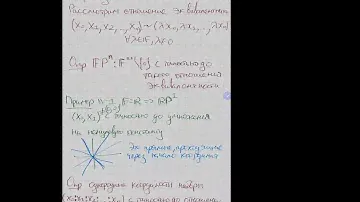 Рассмотрим отношение эквивалентн
(x₀, x₁, x₂, ..., xₙ) ~ (λx₀, λx₁, ..., λxₙ)
∀λ∈F, λ≠0
Опр FPⁿ: Fⁿ⁺¹\{0} с точностью до
отношения
эквивалентности
Пример n=1 F=R => RP¹
(x₀, x₁) с точностью до умножения
на ненулевую константу
Это прямые, проходящие
через начало координат
Опр однородные координаты набора
(x₀:x₁:x₂: ... :xₙ) с точностью до